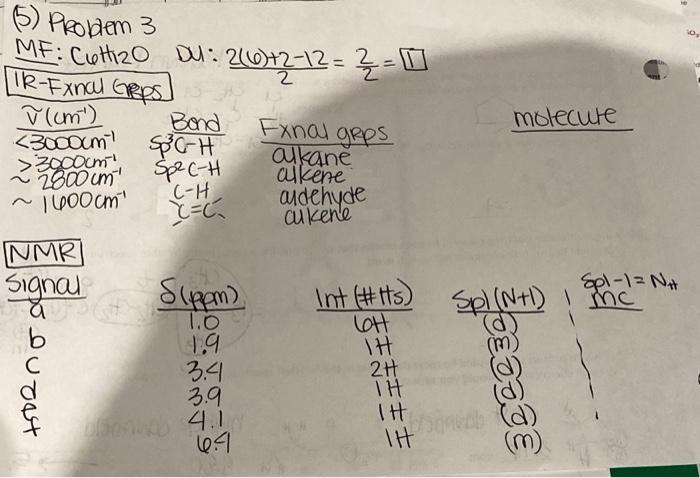 (5) Problem 3
MF: C6H12O DU: 2(6)+2-12/2 = 2/2 = 1
IR-Fxnal Grps
ṽ(cm⁻¹) Bond Fxnal grps molecule
<3000cm⁻¹ sp³C-H alkane
>3000cm⁻¹ sp²C-H alkene
~2800cm⁻¹ C-H aldehyde
~1600cm⁻¹ C=C alkene
NMR
Signal δ(ppm) Int (#Hs) Spl(N+1) Spl-1=N_H mc
a 1.0 6H (d)
b 1.9 1H (m)
c 3.4 2H (d)
d 3.9 1H (d)
e 4.1 1H (d)
f 6.4 1H (m)